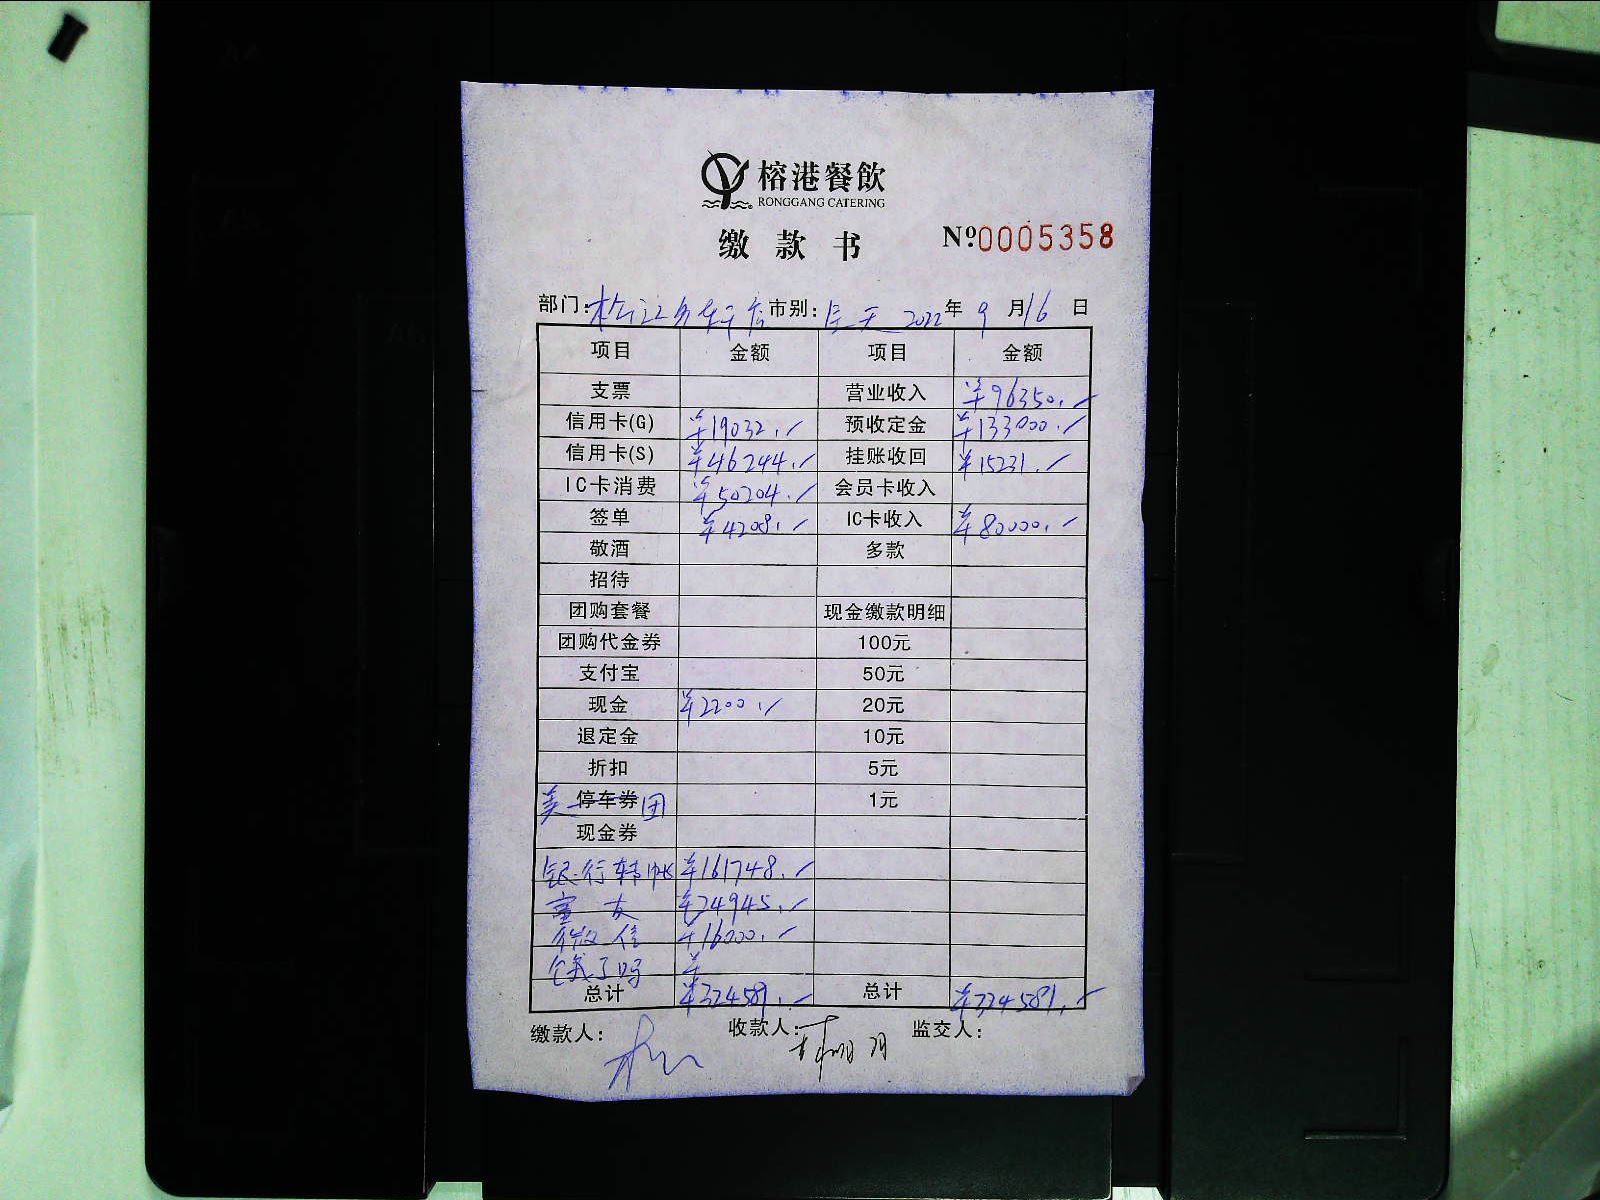 榕港餐飲
RONGGANG CATERING
缴款书 №0005358
部门: 松江 市别: 全天 2022年 9月16日
项目 金额 项目 金额
支票 营业收入 ¥96350.
信用卡(G) ¥19032. 预收定金 ¥133000.
信用卡(S) ¥46244. 挂账收回 ¥15231.
IC卡消费 ¥50204. 会员卡收入
签单 ¥4208. IC卡收入 ¥80000.
敬酒 多款
招待
团购套餐 现金缴款明细
团购代金券 100元
支付宝 50元
现金 ¥2200. 20元
退定金 10元
折扣 5元
美 停车券 团 1元
现金券
银行转帐 ¥161748.
¥24945.
微信 ¥16000.
饿了吗 ¥
总计 ¥324581. 总计 ¥324581.
缴款人: 收款人: 监交人: